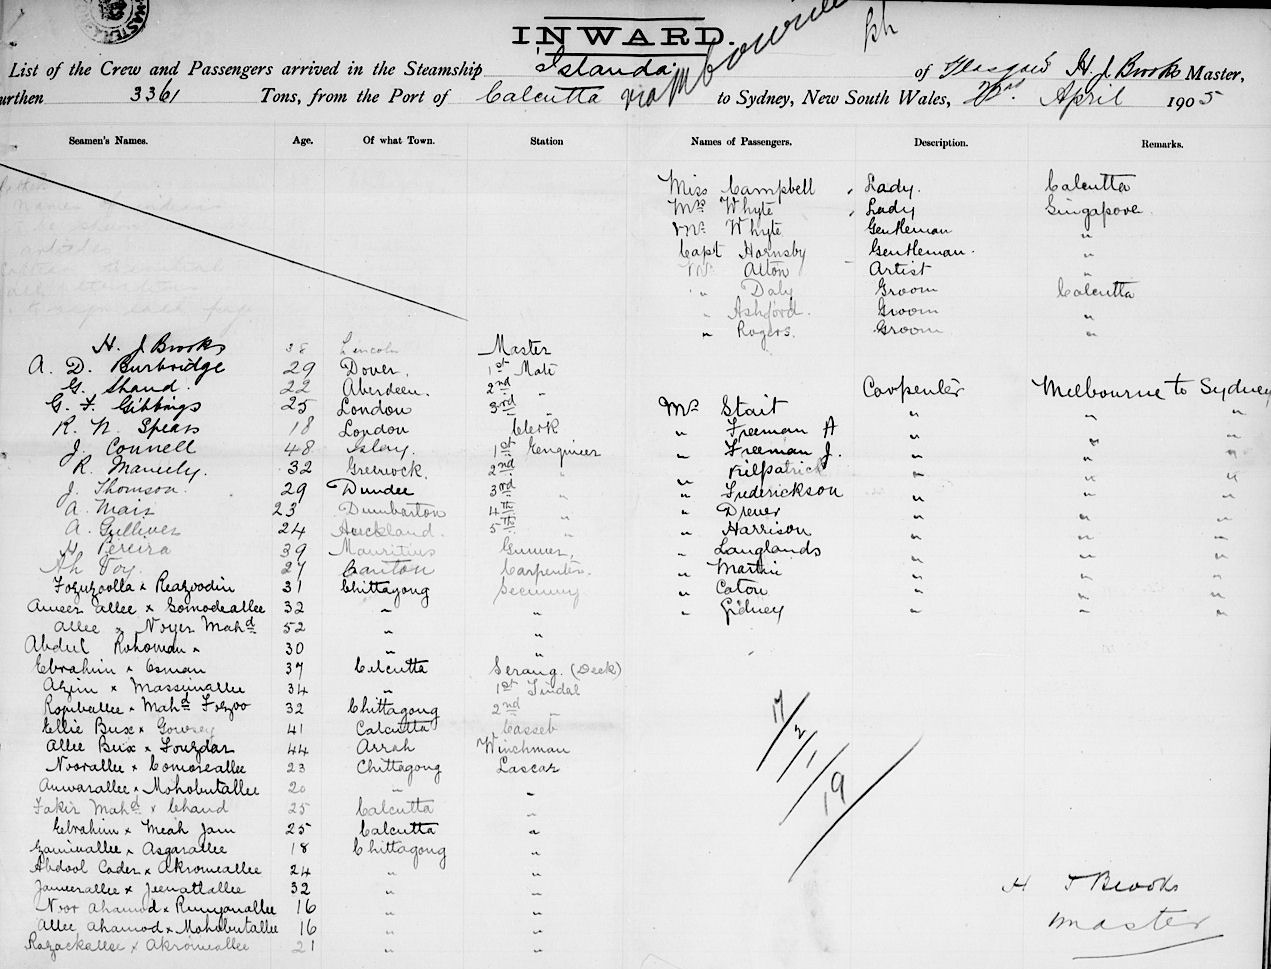 INWARD.
List of the Crew and Passengers arrived in the Steamship "Islanda" of Glasgow H. J. Brooks Master,
urthen 3361 Tons, from the Port of Calcutta via Melbourne to Sydney, New South Wales, April 1905
Seamen's Names. Age. Of what Town. Station Names of Passengers. Description. Remarks.
Miss Campbell Lady. Calcutta
Mrs Whyte Lady Singapore
Mr. Whyte Gentleman "
Capt Hornsby Gentleman. "
Mr. Alton Artist "
" Daly Groom Calcutta
" Ashford. Groom "
" Rogers. Groom "
H. J Brooks 38 Lincoln Master
A. D. Burbridge 29 Dover. 1st Mate
G. Shand. 22 Aberdeen. 2nd "
G. F. Gibbings 25 London 3rd "
R. N. Spears 18 London Clerk
J. Connell 48 Islay. 1st Engineer
R. 32 Greenock. 2nd "
J. Thomson. 29 Dundee 3rd "
A. Mair 23 Dumbarton 4th "
A. Gulliver 24 Auckland. 5th "
H. Pereira 39 Mauritius Gunner,
Ah Foy. 27 Canton Carpenter.
Fozuzoolla x Reazoodin 31 Chittagong Seccunny
Ameer Allee x Gomodeallee 32 " "
Allee x Noyer Mahd 52 " "
Abdul Rohoman x 30 " "
Ebrahim x Osman 37 Calcutta Serang. (Deck)
Azim x Massimallee 34 " 1st Tindal
Ropiballee x Mahd Fozoo 32 Chittagong 2nd "
Ellie Bux x 41 Calcutta Casseb
Allee Bux x Fouzdar 44 Arrah Winchman
Noorallee x Comoreallee 23 Chittagong Lascar
Anwarallee x Mohobutallee 20 " "
Fakir Mahd x Chand 25 Calcutta "
Ebrahim x Meah Jam 25 Calcutta "
Gaminallee x Asgarallee 18 Chittagong "
Abdool Cader x Akromeallee 24 " "
Jameerallee x Jeenatallee 32 " "
Noor Ahamod x 16 " "
Allee Ahamod x Mohobutallee 16 " "
Razackallee x Akromeallee 21 " "
Carpenter Melbourne to Sydney
Mr Stait " " "
" Freeman A " " "
" Freeman J. " " "
" Kilpatrick " " "
" Frederickson " " "
" Drever " " "
" Harrison " " "
" Langlands " " "
" Martin " " "
" Caton " " "
" Gidney " " "
17/2/1/19
H J Brooks
Master